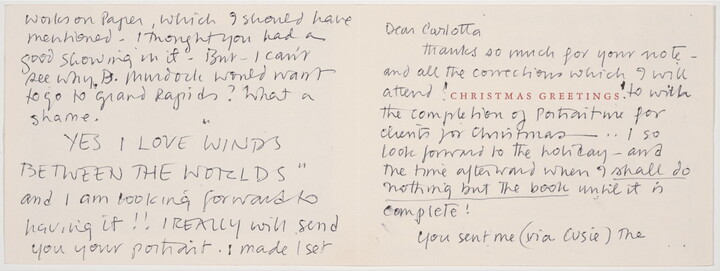 works on Paper, which I should have
mentioned - I thought you had a
good showing in it - But - I can't
see why D. Murdock would want
to go to Grand Rapids? What a
shame.
"YES I LOVE WINDS
BETWEEN THE WORLDS"
and I am looking forward to
having it!! I REALLY will send
you your portrait. I made 1 set
Dear Carlotta
Thanks so much for your note -
and all the corrections which I will
attend! CHRISTMAS GREETINGS to with
the completion of Portraiture for
clients for Christmas — .. I so
look forward to the holiday - and
the time afterward when I shall do
nothing but the book until it is
complete!
You sent me (via Cusie) The